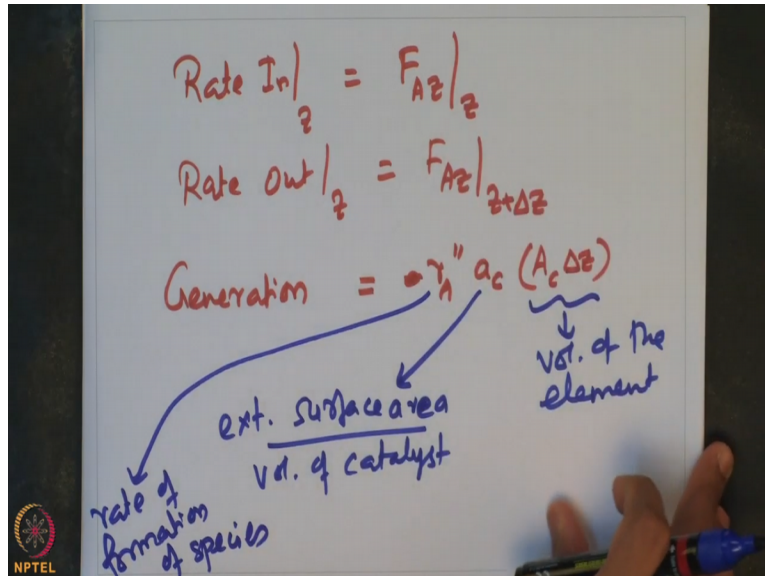 Rate In|z = F_AZ|z
Rate Out|z = F_AZ|z+Δz
Generation = r_A" a_c (A_c Δz)
vol. of the
element
ext. surface area
vol. of catalyst
rate of
formation
of species
NPTEL